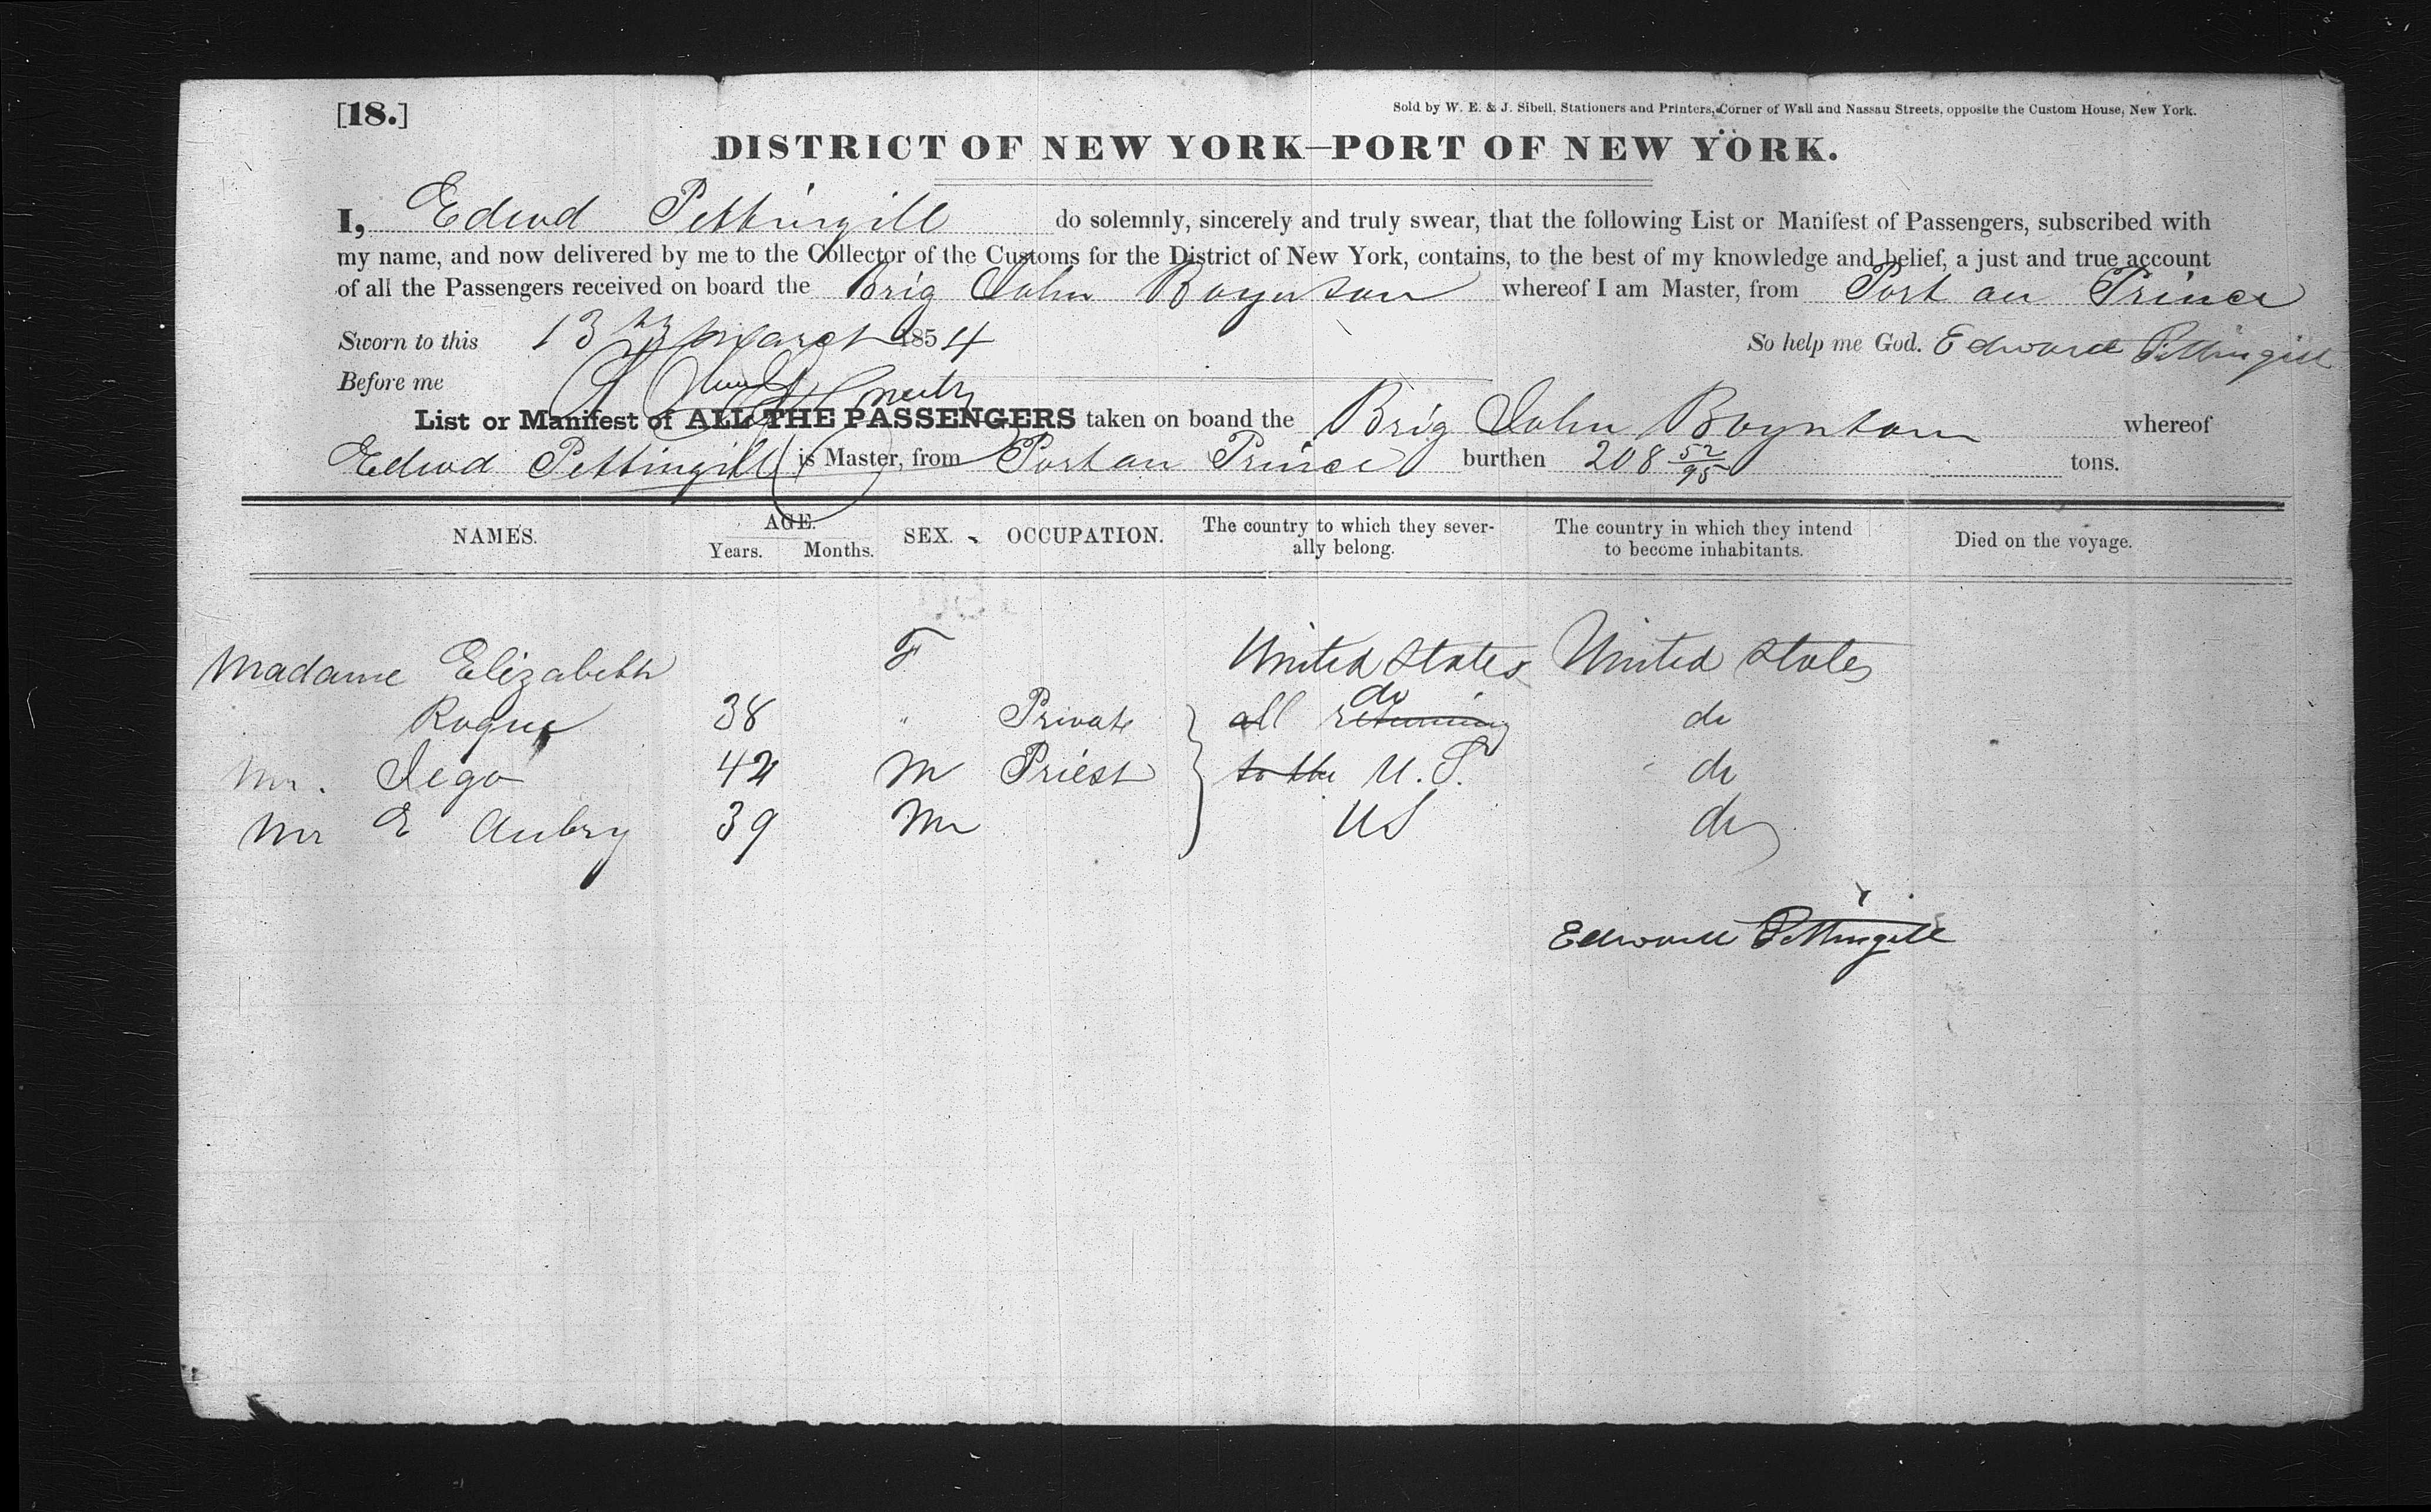 [18.]
Sold by W. E. & J. Sibell, Stationers and Printers, Corner of Wall and Nassau Streets, opposite the Custom House, New York.
DISTRICT OF NEW YORK—PORT OF NEW YORK.
I, Edwd Pettingill do solemnly, sincerely and truly swear, that the following List or Manifest of Passengers, subscribed with
my name, and now delivered by me to the Collector of the Customs for the District of New York, contains, to the best of my knowledge and belief, a just and true account
of all the Passengers received on board the Brig John Boynton whereof I am Master, from Port au Prince
Sworn to this 13 March 1854 So help me God. Edward Pettingill
Before me
List or Manifest of ALL THE PASSENGERS taken on boand the Brig John Boynton whereof
Edwd Pettingill is Master, from Port au Prince burthen 208 52/95 tons.
NAMES. AGE. Years. Months. SEX. OCCUPATION. The country to which they severally belong. The country in which they intend to become inhabitants. Died on the voyage.
Madame Elizabeth F United States United States
Roque 38 " Private all returning do do
Mr. Jego 42 M Priest to the U.S. do
Mr E Aubry 39 M US do
Edward Pettingill